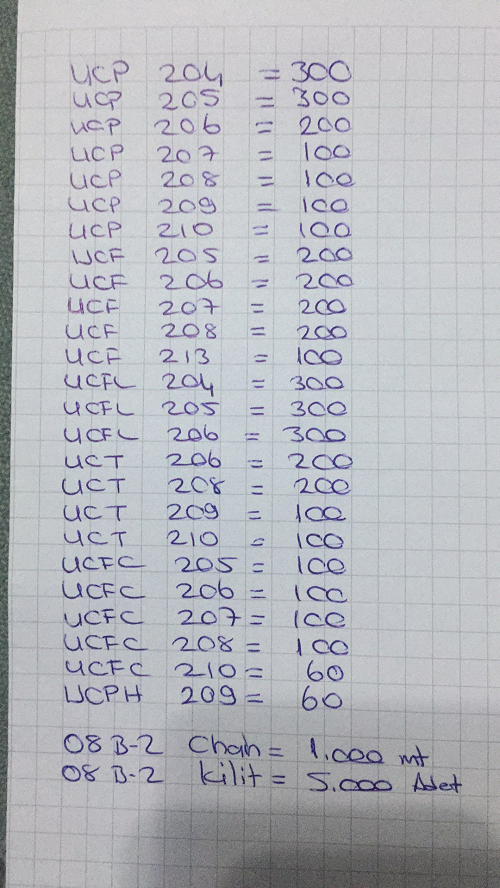 UCP 204 = 300
UCP 205 = 300
UCP 206 = 200
UCP 207 = 100
UCP 208 = 100
UCP 209 = 100
UCP 210 = 100
UCF 205 = 200
UCF 206 = 200
UCF 207 = 200
UCF 208 = 200
UCF 213 = 100
UCFL 204 = 300
UCFL 205 = 300
UCFL 206 = 300
UCT 206 = 200
UCT 208 = 200
UCT 209 = 100
UCT 210 = 100
UCFC 205 = 100
UCFC 206 = 100
UCFC 207 = 100
UCFC 208 = 100
UCFC 210 = 60
UCPH 209 = 60
08 B-2 Chain = 1.000 mt
08 B-2 Kilit = 5.000 Adet